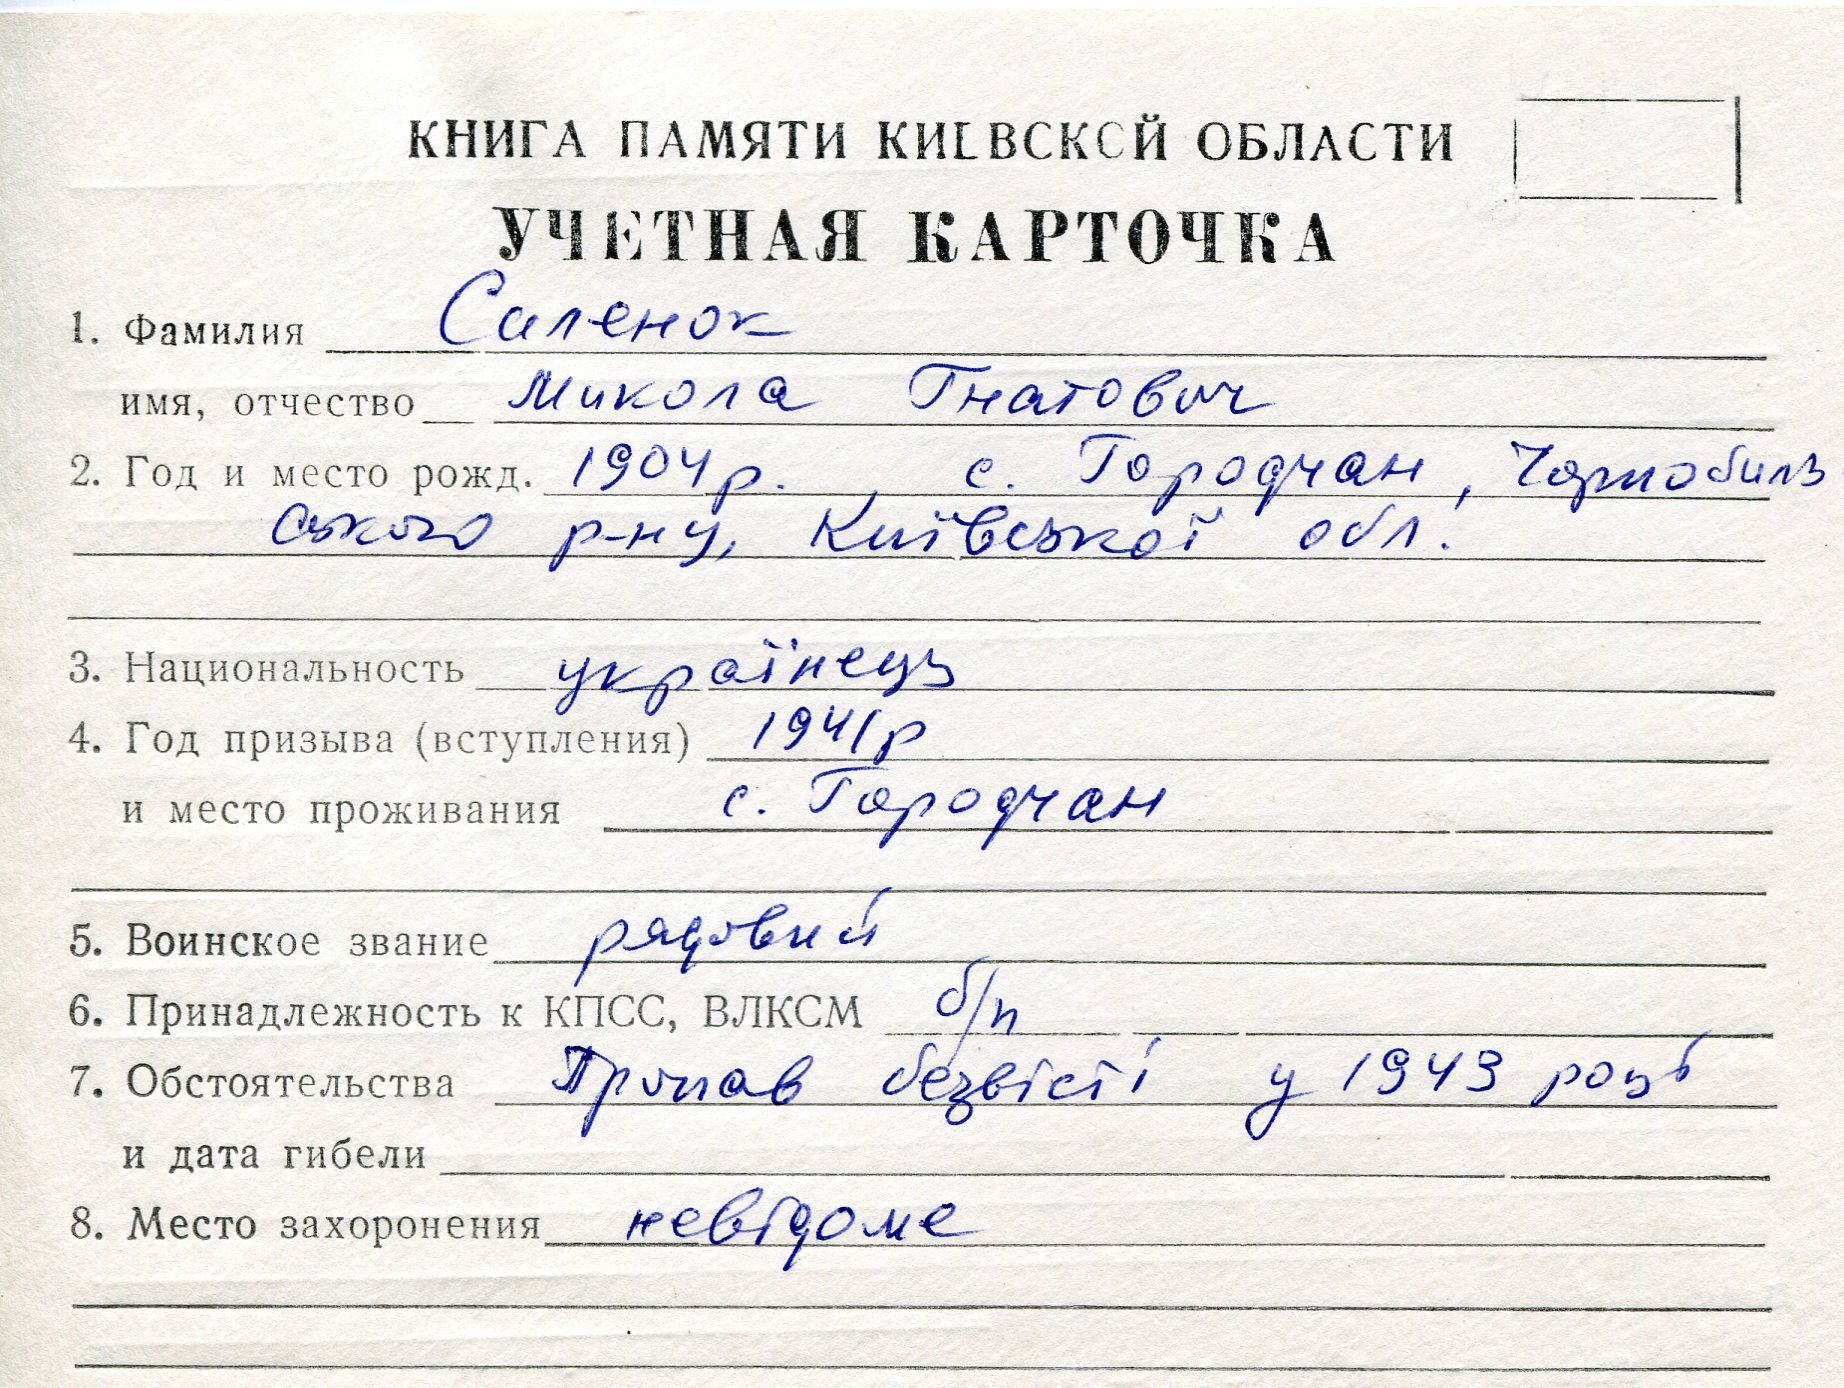 КНИГА ПАМЯТИ КИЕВСКОЙ ОБЛАСТИ
УЧЕТНАЯ КАРТОЧКА
1. Фамилия Саленок
имя, отчество Микола Гнатович
2. Год и место рожд. 1904 р. с. Городчан, Чорнобиль
ського р-ну, Київської обл.
3. Национальность українець
4. Год призыва (вступления) 1941 р
и место проживания с. Городчан
5. Воинское звание рядовий
6. Принадлежность к КПСС, ВЛКСМ б/п
7. Обстоятельства Пропав безвісті у 1943 році
и дата гибели
8. Место захоронения невідоме